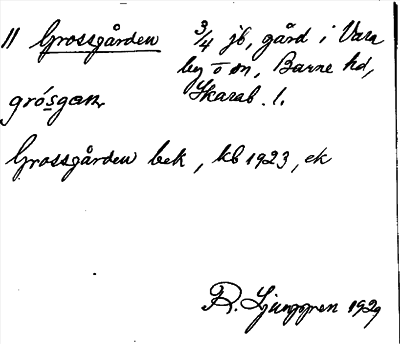 11 Grossgården 3/4 jb, gård i Vara
by o sn, Barne hd,
grósgan Skarab. l.
Grossgården bek, kb 1923, ek
R. Ljunggren 1929